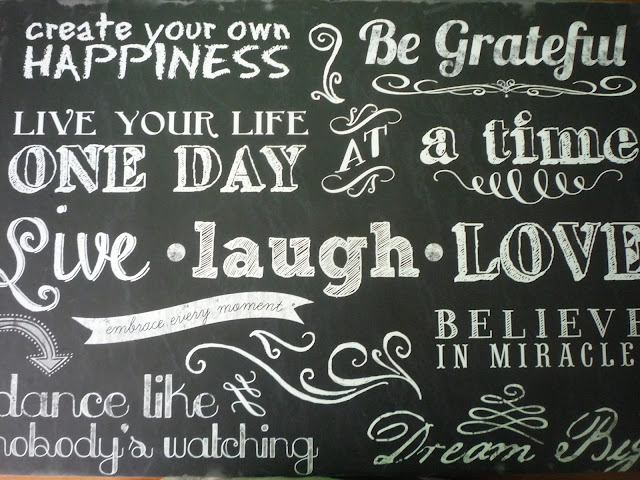 create your own
HAPPINESS
Be Grateful
LIVE YOUR LIFE
ONE DAY
AT
a time
Live • laugh • LOVE
embrace every moment
BELIEVE
IN MIRACLE
dance like
nobody's watching
Dream Big